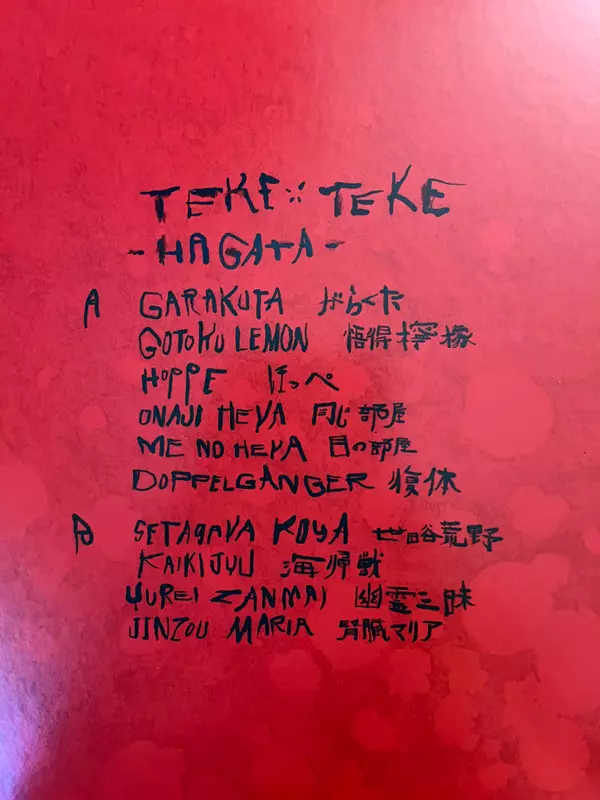 TEKE::TEKE
-HAGATA-
A GARAKUTA がらくた
GOTOKU LEMON 悟得檸檬
HOPPE ほっぺ
ONAJI HEYA 同じ部屋
ME NO HEYA 目の部屋
DOPPELGANGER 複体
B SETAGAYA KOYA 世田谷荒野
KAIKIJUU 海帰獣
YUREI ZANMAI 幽霊三昧
JINZOU MARIA 腎臓マリア